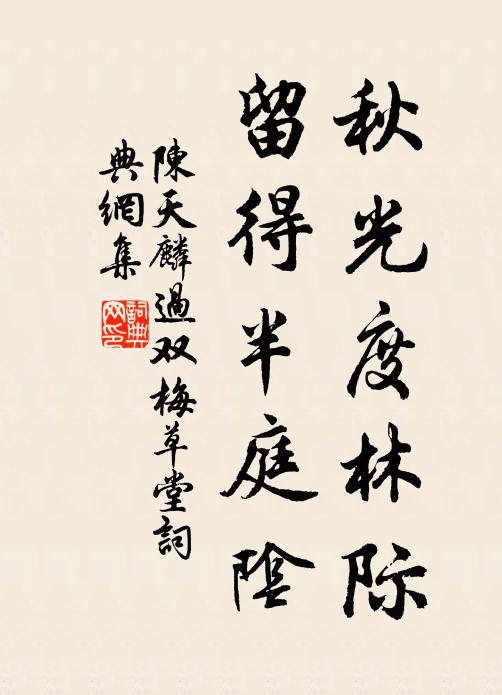 秋光度林际
留得半庭陰
陳天麟過双梅草堂詞
典網集
詞典网印